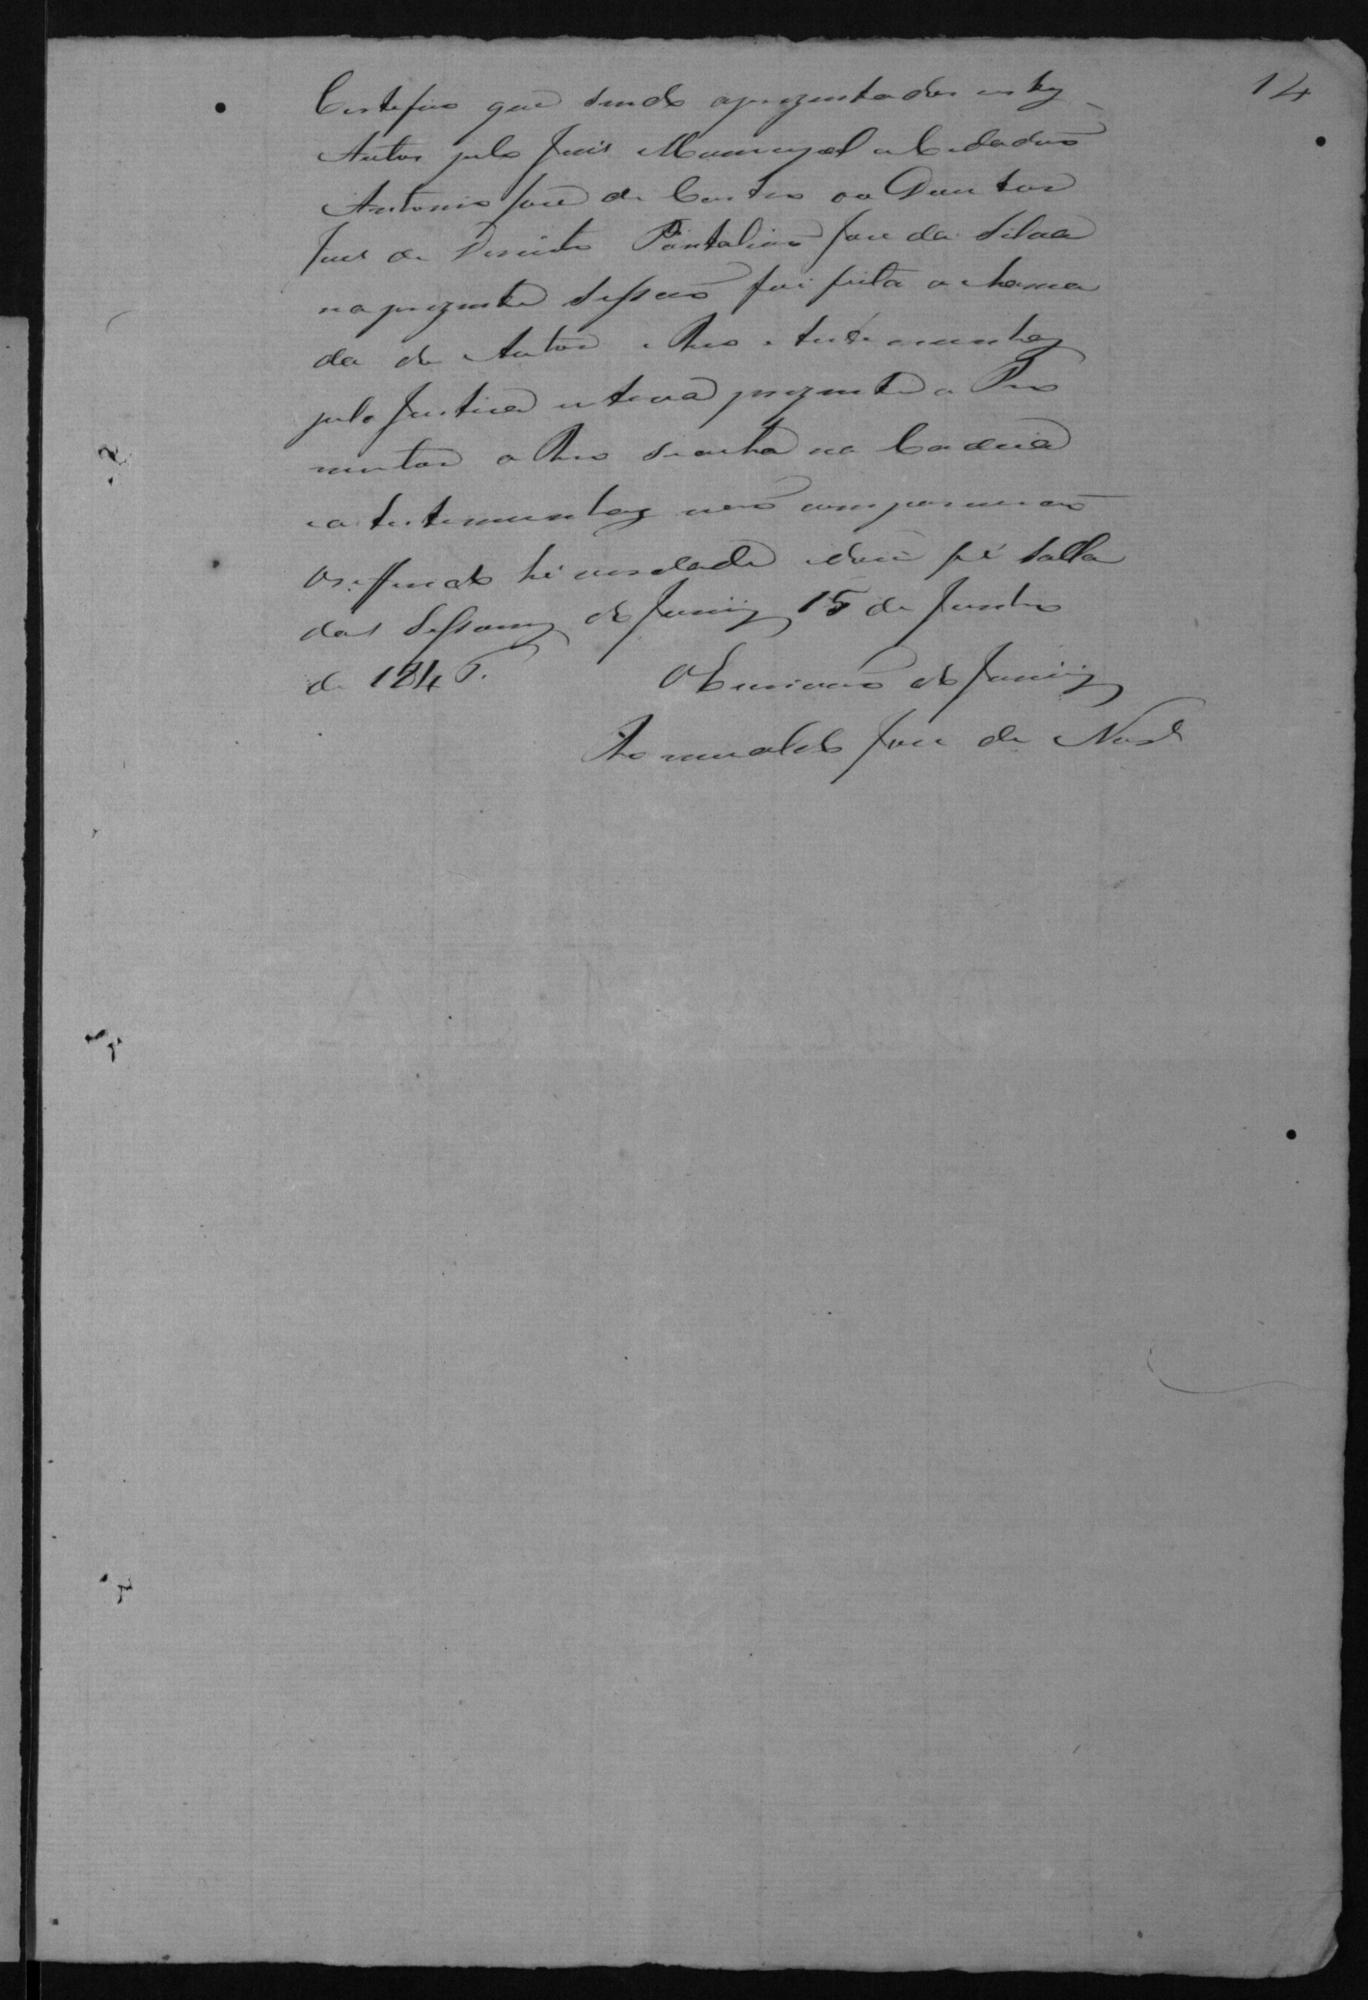 14
Certefico que sendo aprezentados estes
Autos pelo Juis Municipal o Cidadaõ
Antonio Jose de Castro ao Doutor
Juis de Direito Pantaliaõ Jose da Silva
na prezente Sessaõ foi feita a chama
da do Autor e Reo e testemunhas
pela Justica estava prezente o Pro
mutor o Reo se acha na Cadeia
e as testemunhas naõ compareceraõ
O refferido hé verdade e dou fé Salla
das Sessoens do Jurij 15 de Junho
de 184
O Escrivaõ do Jurij
Romualdo Jose de